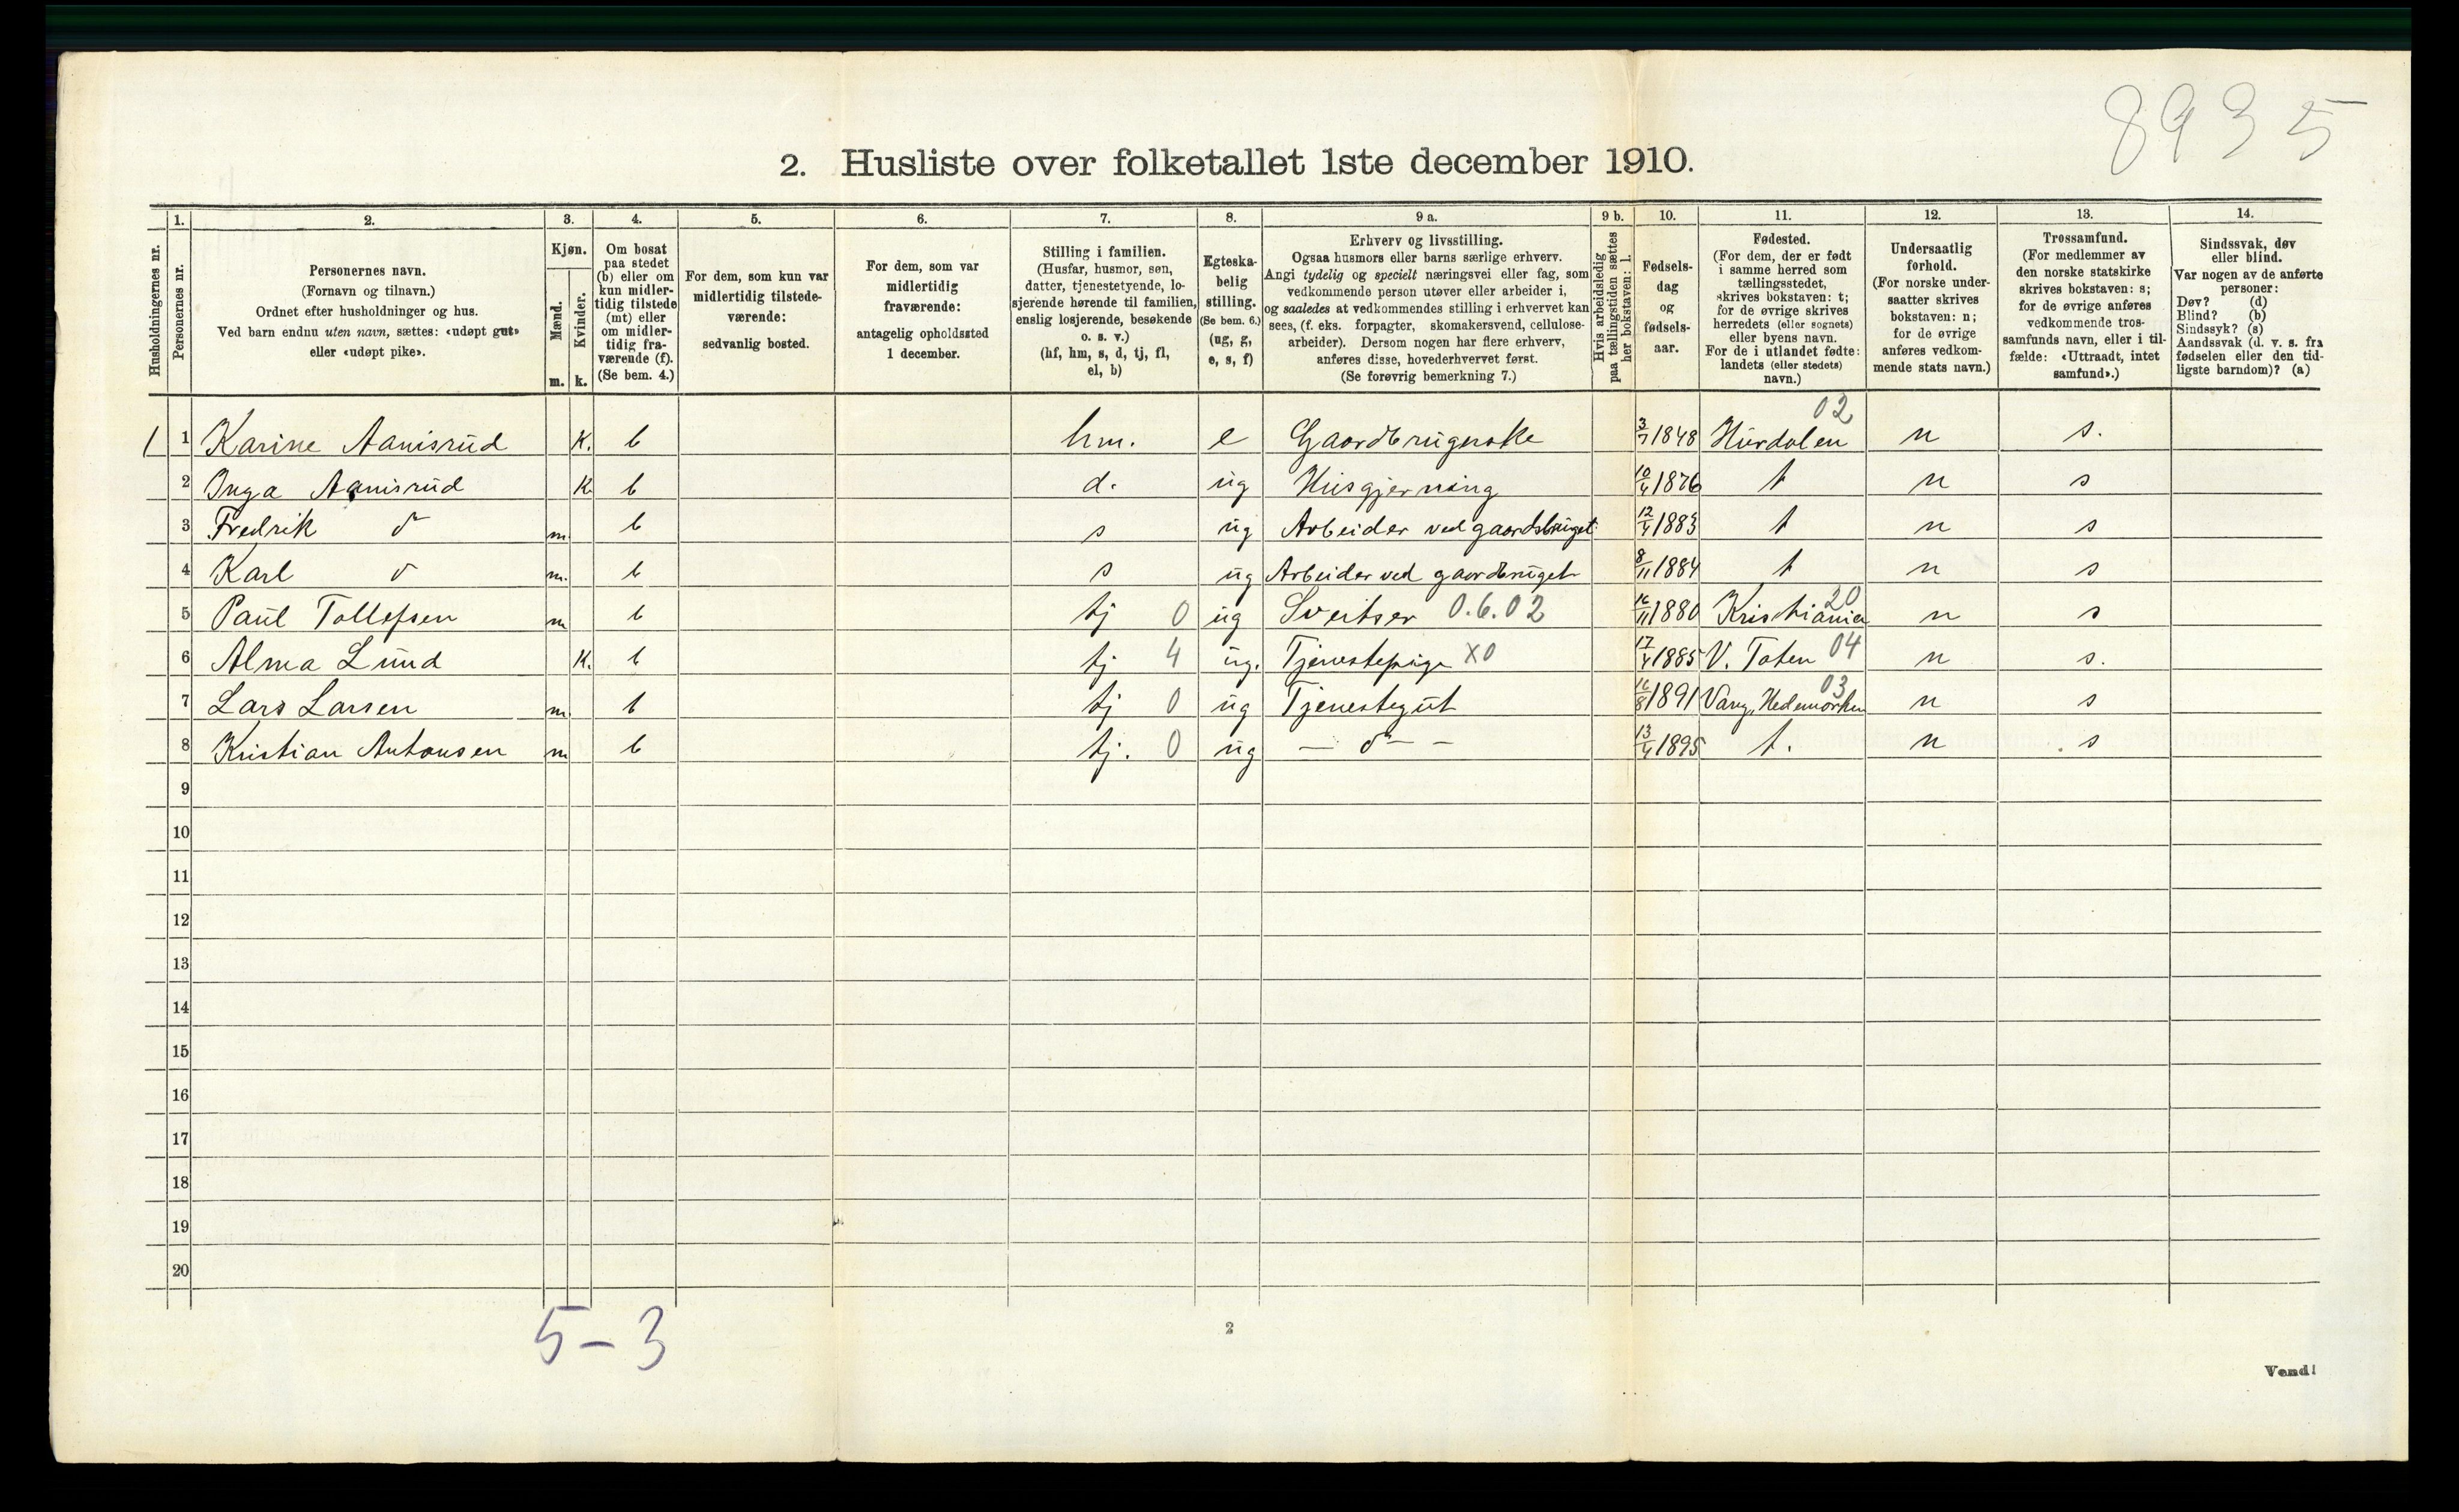 8935
2. Husliste over folketallet 1ste december 1910.
Husholdningernes nr.
1.
Personernes nr.
2.
Personernes navn.
(Fornavn og tilnavn.)
Ordnet efter husholdninger og hus.
Ved barn endnu uten navn, sættes: «udøpt gut»
eller «udøpt pike».
3.
Kjøn.
Mænd.
Kvinder.
m. k.
4.
Om bosat
paa stedet
(b) eller om
kun midler-
tidig tilstede
(mt) eller
om midler-
tidig fra-
værende (f).
(Se bem. 4.)
5.
For dem, som kun var
midlertidig tilstede-
værende:
sedvanlig bosted.
6.
For dem, som var
midlertidig
fraværende:
antagelig opholdssted
1 december.
7.
Stilling i familien.
(Husfar, husmor, søn,
datter, tjenestetyende, lo-
sjerende hørende til familien,
enslig losjerende, besøkende
o. s. v.)
(hf, hm, s, d, tj, fl,
el, b)
8.
Egteska-
belig
stilling.
(Se bem. 6.)
(ug, g,
e, s, f)
9 a.
Erhverv og livsstilling.
Ogsaa husmors eller barns særlige erhverv.
Angi tydelig og specielt næringsvei eller fag, som
vedkommende person utøver eller arbeider i,
og saaledes at vedkommendes stilling i erhvervet kan
sees, (f. eks. forpagter, skomakersvend, cellulose-
arbeider). Dersom nogen har flere erhverv,
anføres disse, hovederhvervet først.
(Se forøvrig bemerkning 7.)
9 b.
Hvis arbeidsledig
paa tællingstiden sættes
her bokstaven: l.
10.
Fødsels-
dag
og
fødsels-
aar.
11.
Fødested.
(For dem, der er født
i samme herred som
tællingsstedet,
skrives bokstaven: t;
for de øvrige skrives
herredets (eller sognets)
eller byens navn.
For de i utlandet fødte:
landets (eller stedets)
navn.)
12.
Undersaatlig
forhold.
(For norske under-
saatter skrives
bokstaven: n;
for de øvrige
anføres vedkom-
mende stats navn.)
13.
Trossamfund.
(For medlemmer av
den norske statskirke
skrives bokstaven: s;
for de øvrige anføres
vedkommende tros-
samfunds navn, eller i til-
fælde: «Uttraadt, intet
samfund».)
14.
Sindssvak, døv
eller blind.
Var nogen av de anførte
personer:
Døv? (d)
Blind? (b)
Sindssyk? (s)
Aandssvak (d. v. s. fra
fødselen eller den tid-
ligste barndom)? (a)
1 1 Karine Aanisrud K. b hm. e Gaardbrugerske 3/7 1848 Hurdalen 02 n s.
2 Inga Aanisrud K b d. ug Husgjerning 10/4 1876 t n s
3 Fredrik do m b s ug Arbeider ved gaardsbruget 12/4 1883 t n s
4 Karl do m. b s ug Arbeider ved gaardbruget 8/11 1884 t n s
5 Paul Tollefsen m b tj 0 ug Sveitser 0.6.02 16/11 1880 Kristiania 20 n s
6 Alma Lund K. b tj 4 ug. Tjenestepige X0 17/4 1885 V. Toten 04 n s.
7 Lars Larsen m b tj 0 ug Tjenestegut 16/8 1891 Vang, Hedemarken 03 n s
8 Kristian Antonsen m b tj. 0 ug — do — 13/4 1895 t. n s
9
10
11
12
13
14
15
16
17
18
19
20
5-3
2
Vend!